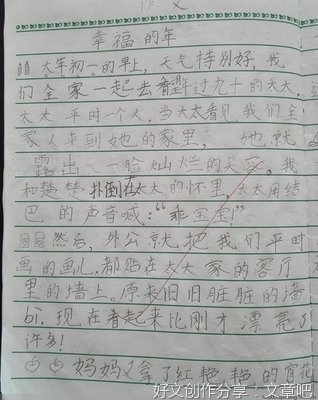 作文
幸福的年
大年初一的早上，天气特别好，我
们全家一起去看望年过九十的太太，
太太平时一个人，当太太看见我们全
家人来到她的家里，她就
露出大一脸灿烂的笑容。我
和楚楚扑倒在太太的怀里，太太用结
巴的声音喊：“乖宝宝！”
然后，外公就把我们平时
画的画儿，都贴在太太家的客厅
里的墙上。原来旧旧脏脏的墙
bi，现在看起来比刚才漂亮了
许多！
妈妈又拿了红艳艳的百花
好文创作分享．文章吧